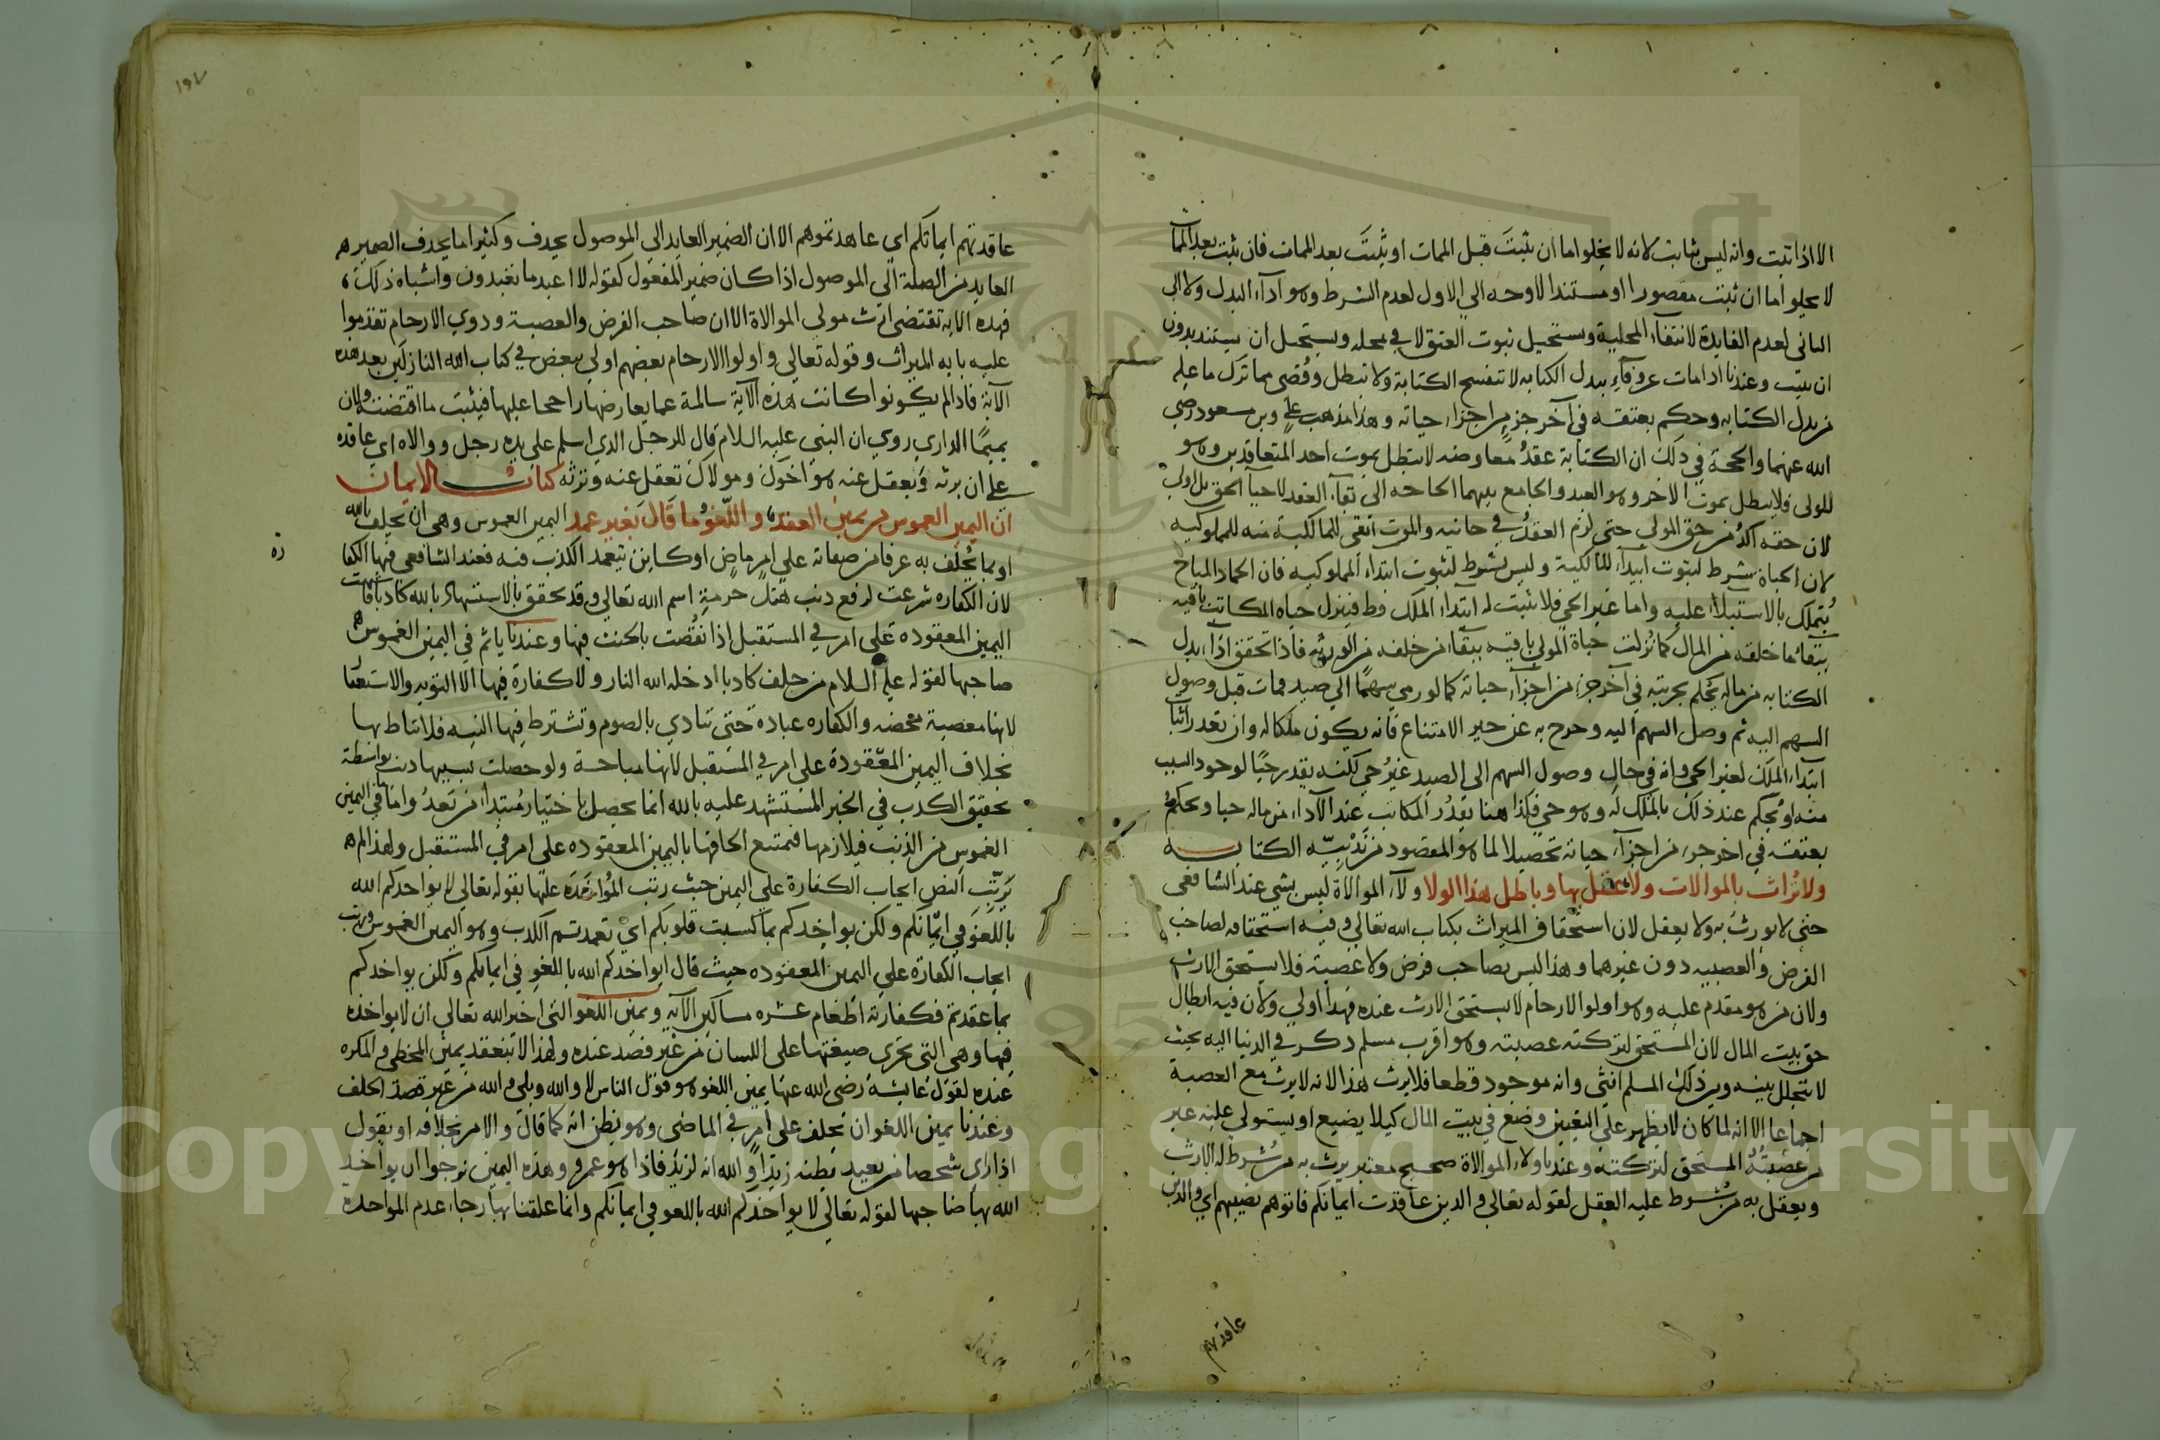 الا اذا ثبت وانه ليس بثابت لانه لا يخلوا اما ان يثبت قبل الممات او يثبت بعد الممات فان ثبت بعد الممات
لا يخلو اما ان ثبت مقصورا او مستندا لا وجه الي الاول لعدم الشرط وهو اداء البدل ولا الى
الثاني لعدم الفايدة لانتفاء المحلية ويستحيل ثبوت العتق لا في محله ويستحيل ان يستند بدون
ان يثبت وعندنا اذا مات عن وفاء ببدل الكتابه لا تنفسخ الكتابة ولا تبطل وقضى مما ترك ما عليه
من بدل الكتابه وحكم بعتقه في آخر جزء من اجزاء حياته وهذا مذهب علي وبن مسعود رضي
الله عنهما والحجة في ذلك ان الكتابة عقد معاوضه لا تبطل بموت احد المتعاقدين وهو
المولى فلا يبطل بموت الاخر وهو العبد والجامع بينهما الحاجه الى بقاء العقد لاحياء الحق بل اولى
لان حقه اكد من حق المولى حتى لزم العقد في جانبه والموت انقى للمالكية منه للمملوكيه
لان الحياة شرط لثبوت ابتداء المالكية وليس بشرط لثبوت ابتداء المملوكيه فان الجماد المباح
يتملك بالاستيلاء عليه واما غير الحي فلا يثبت له ابتداء الملك قط فينزل حياه المكاتب باقيه
ببقاء ما خلفه من المال كما نزلت حياة المولي باقيه ببقاء من خلفه من الورثه فاذا تحقق اداء بدل
الكتابه من ماله يحكم بحريته في آخر جزء من اجزاء حياته كما لو رمي سهما الي صيد فمات قبل وصول
السهم اليه ثم وصل السهم اليه وخرج به عن حيز الامتناع فانه يكون ملكا له وان تعذر اثبات
ابتداء الملك لغير الحي وانه في حال وصول السهم الى الصيد غير حي لكنه يقدر حيا لوجود السبب
منه او يحكم عند ذلك بالملك له وهو حي فكذا هنا يقدر المكاتب عند الاداء من ماله حيا ويحكم
بعتقه في اخر جزء من اجزاء حياته تحصيلا لما هو المقصود من الكتابـــــه
ولا تراث بالموالات ولا عقل بها وباطل هذا الولا ولاء الموالاة ليس بشي عند الشافعى
حتى لا يورث به ولا يعقل لان استحقاق الميراث بكتاب الله تعالي وفيه استحقاقه لصاحب
الفرض والعصبيه دون غيرهما وهذا ليس بصاحب فرض ولا عصبة فلا يستحق الارث
ولان من هو مقدم عليه وهو اولوا الارحام لا يستحق الارث عنده فهذا اولي ولان فيه ابطال
حق بيت المال لان المستحق لتركته عصبته وهو اقرب مسلم ذكر في الدنيا اليه بحيث
لا يتخلل بينه وبين ذلك المسلم انثى وانه موجود قطعا فلا يرث هذا لانه لا يرث مع العصبة
اجماعا الا انه لما كان لا يظهر علي اليقين وضع في بيت المال كيلا يضيع او يستولى عليه غير
من عصبته المستحق لتركته وعندنا ولاء الموالاة صحيح معتبر يرث به من شرط له الارث
ويعقل به من شرط عليه العقل لقوله تعالي والذين عاقدت ايمانكم فاتوهم نصيبهم اي والذين
عاقدتهم
١٩٧
عاقدتهم ايمانكم اي عاهدتموهم الا ان الضمير العايد الي الموصول يحذف وكثيرا ما يحذف الضمير
العايد من الصلة الي الموصول اذا كان ضمير المفعول كقوله لا اعبد ما تعبدون واشباه ذلك
فهذه الايه تقتضى ارث مولى الموالاة الا ان صاحب الفرض والعصبة وذوي الارحام تقدموا
عليه بايه الميراث وقوله تعالي واولوا الارحام بعضهم اولي ببعض في كتاب الله النازلين بعد هذه
الآية فاذا لم يكونوا كانت هذه الآية سالمة عما يعارضها راجحا عليها فيثبت ما اقتضته ولان
تميمًا الداري روي ان النبي عليه السلام قال للرجل الذي اسلم على يده رجل ووالاه اي عاقده
علي ان يرثه ويعقل عنه هو اخوك ومولاك تعقل عنه وترثه كتاب الايمان
ان اليمين الغموس من يمين العقد واللغو ما قال بغير عمد اليمين الغموس وهى ان يحلف بالله
او بما يحلف به عرفا من صفاته علي امر ماض او كاين يتعمد الكذب فيه فعند الشافعى فيها الكفا
رة
لان الكفاره شرعت لرفع ذنب هتك حرمة اسم الله تعالي وقد تحقق بالاستشهاد بالله كاذبا
اليمين المعقوده على امر في المستقبل اذا نقضت بالحنث فيها وعندنا ياثم في اليمين الغموس
صاحبها لقوله عليه السلام من حلف كاذبا ادخله الله النار ولا كفارة فيها الا التوبه والاستغفار
لانها معصية محضه والكفاره عبادة حتى تتادي بالصوم وتشترط فيها النيه فلا تناط بها
بخلاف اليمين المعقودة على امر في المستقبل لانها مباحة ولو حصلت بسببها ذنب بواسطة
تحقيق الكذب في الخبر المستشهد عليه بالله انما يحصل باختيار مبتدا من بعد واما في اليمين
الغموس من الذنب فيلازمها فيمتنع الحاقها باليمين المعقوده على امر في المستقبل ولهذا لم
يرتب النص ايجاب الكفارة علي اليمين حيث رتب المواخذه عليها بقوله تعالي لا يواخذكم الله
باللغو في ايمانكم ولكن يواخذكم بما كسبت قلوبكم اي تعمدتم الكذب وهو اليمين الغموس ورتب
ايجاب الكفارة علي اليمين المعقوده حيث قال لا يواخذكم الله باللغو في ايمانكم ولكن يواخذكم
بما عقدتم فكفارته اطعام عشره مساكين الآيه ويمين اللغو التى اخبر الله تعالي ان لا يواخذه
فيها وهى التى تجرى صيغتها على اللسان من غير قصد عنده ولهذا لا تنعقد يمين المخطى والمكره
عنده لقول عايشة رضى الله عنها يمين اللغو هو قول الناس لا والله وبلى والله من غير قصد الحلف
وعندنا يمين اللغو ان يحلف على امر في الماضى وهو يظن انه كما قال والامر بخلافه او يقول
اذا راي شخصا من بعيد يظنه زيدا والله انه لزيد فاذا هو عمرو وهذه اليمين نرجوا ان يواخذ
الله بها صاحبها لقوله تعالي لا يواخذكم الله باللغو في ايمانكم وانما علقنا بها رجاء عدم المواخذه
Copyright © King Saud University